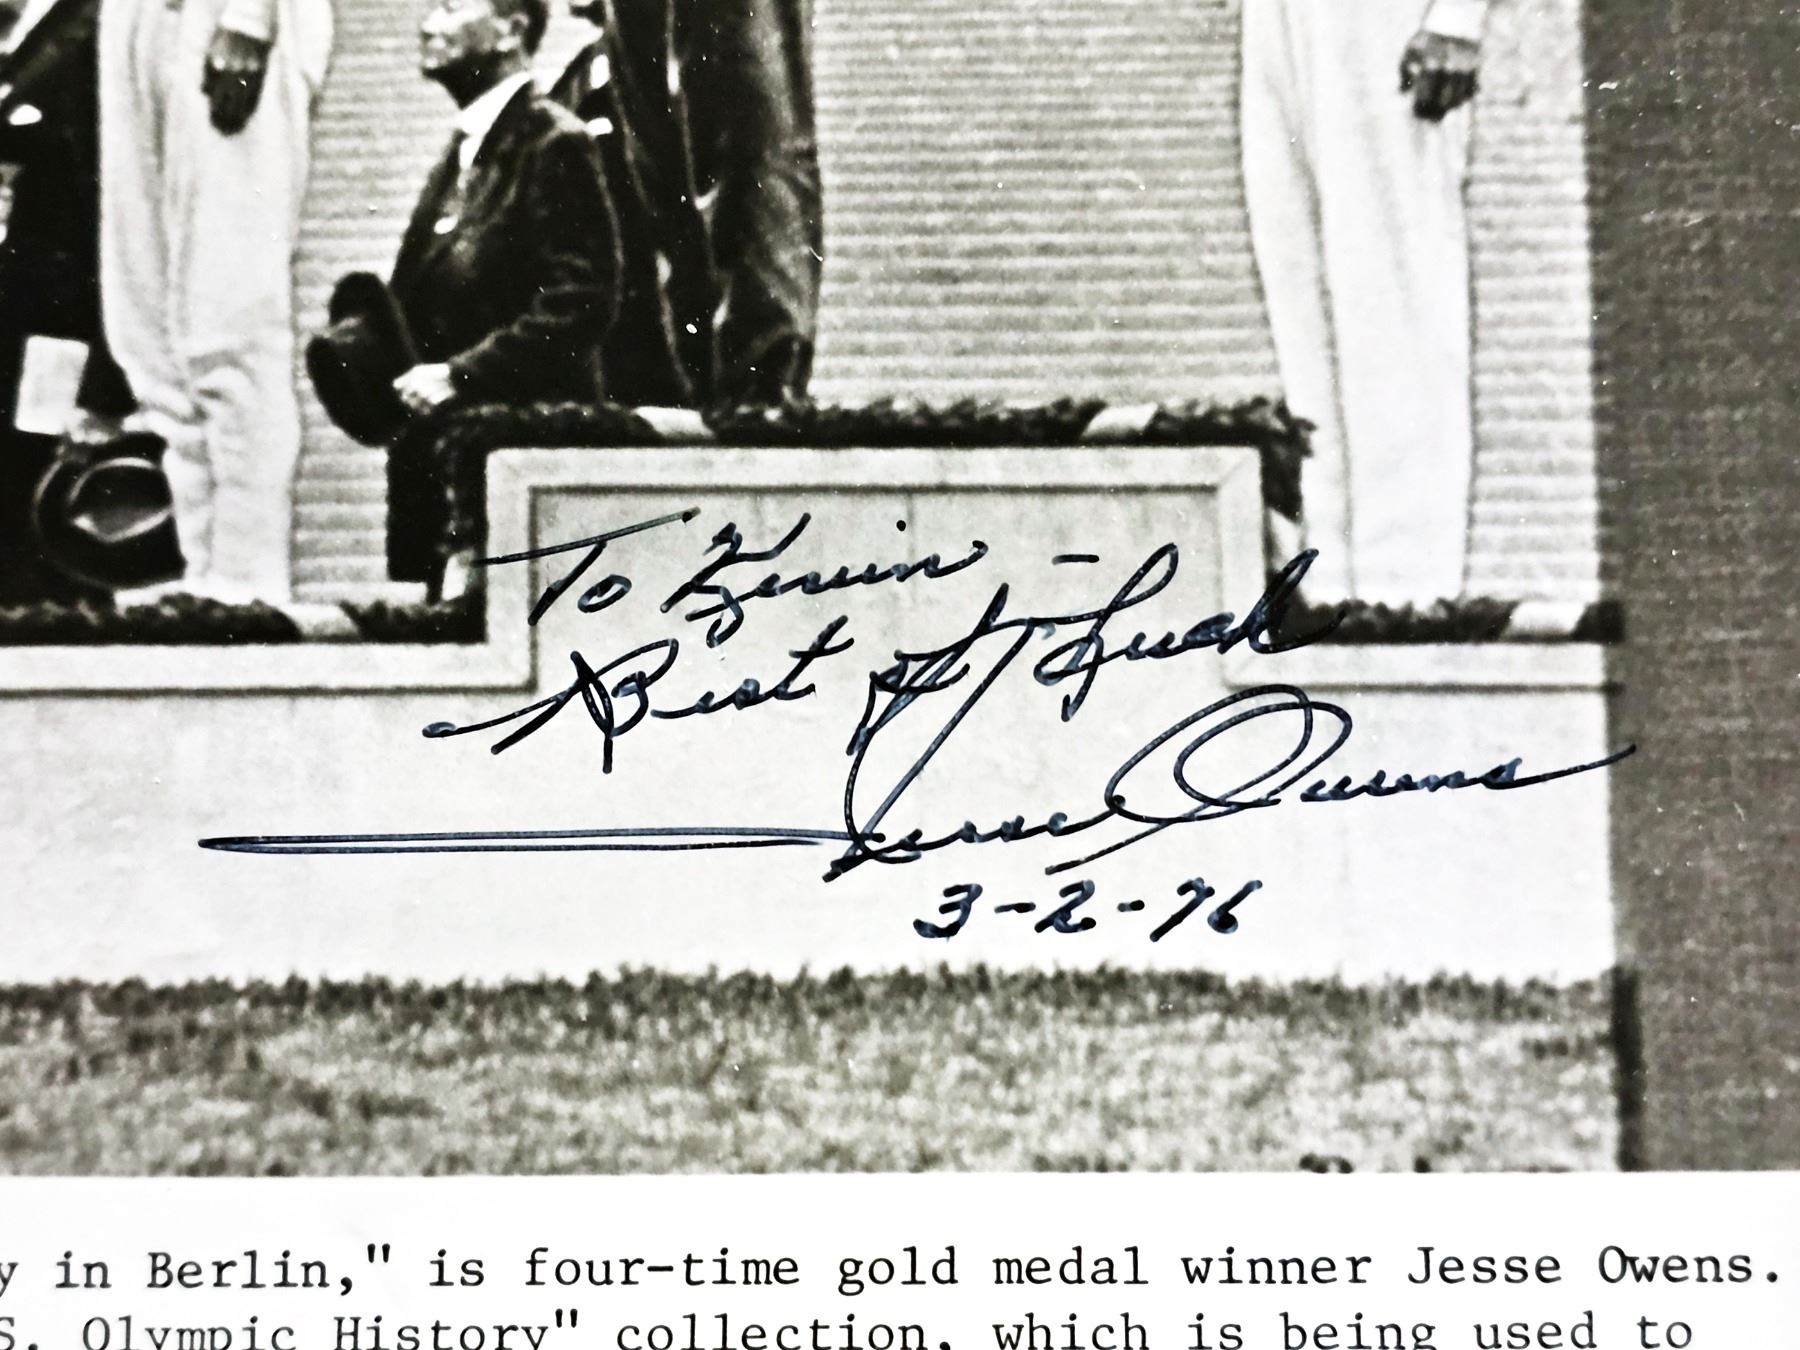 To Kevin -
Best of Luck
Jesse Owens
3-2-76
y in Berlin," is four-time gold medal winner Jesse Owens.
S. Olympic History" collection, which is being used to